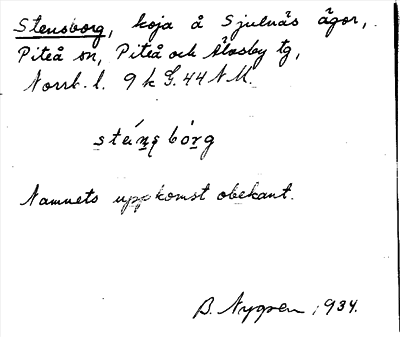 Stensborg, koja å Sjulnäs ägor,
Piteå sn, Piteå och Älvsby tg,
Norrb. l. 9 k G. 44 N M.
sté̱ṇs bór̠g
Namnets uppkomst obekant.
B. Nygren, 1934.